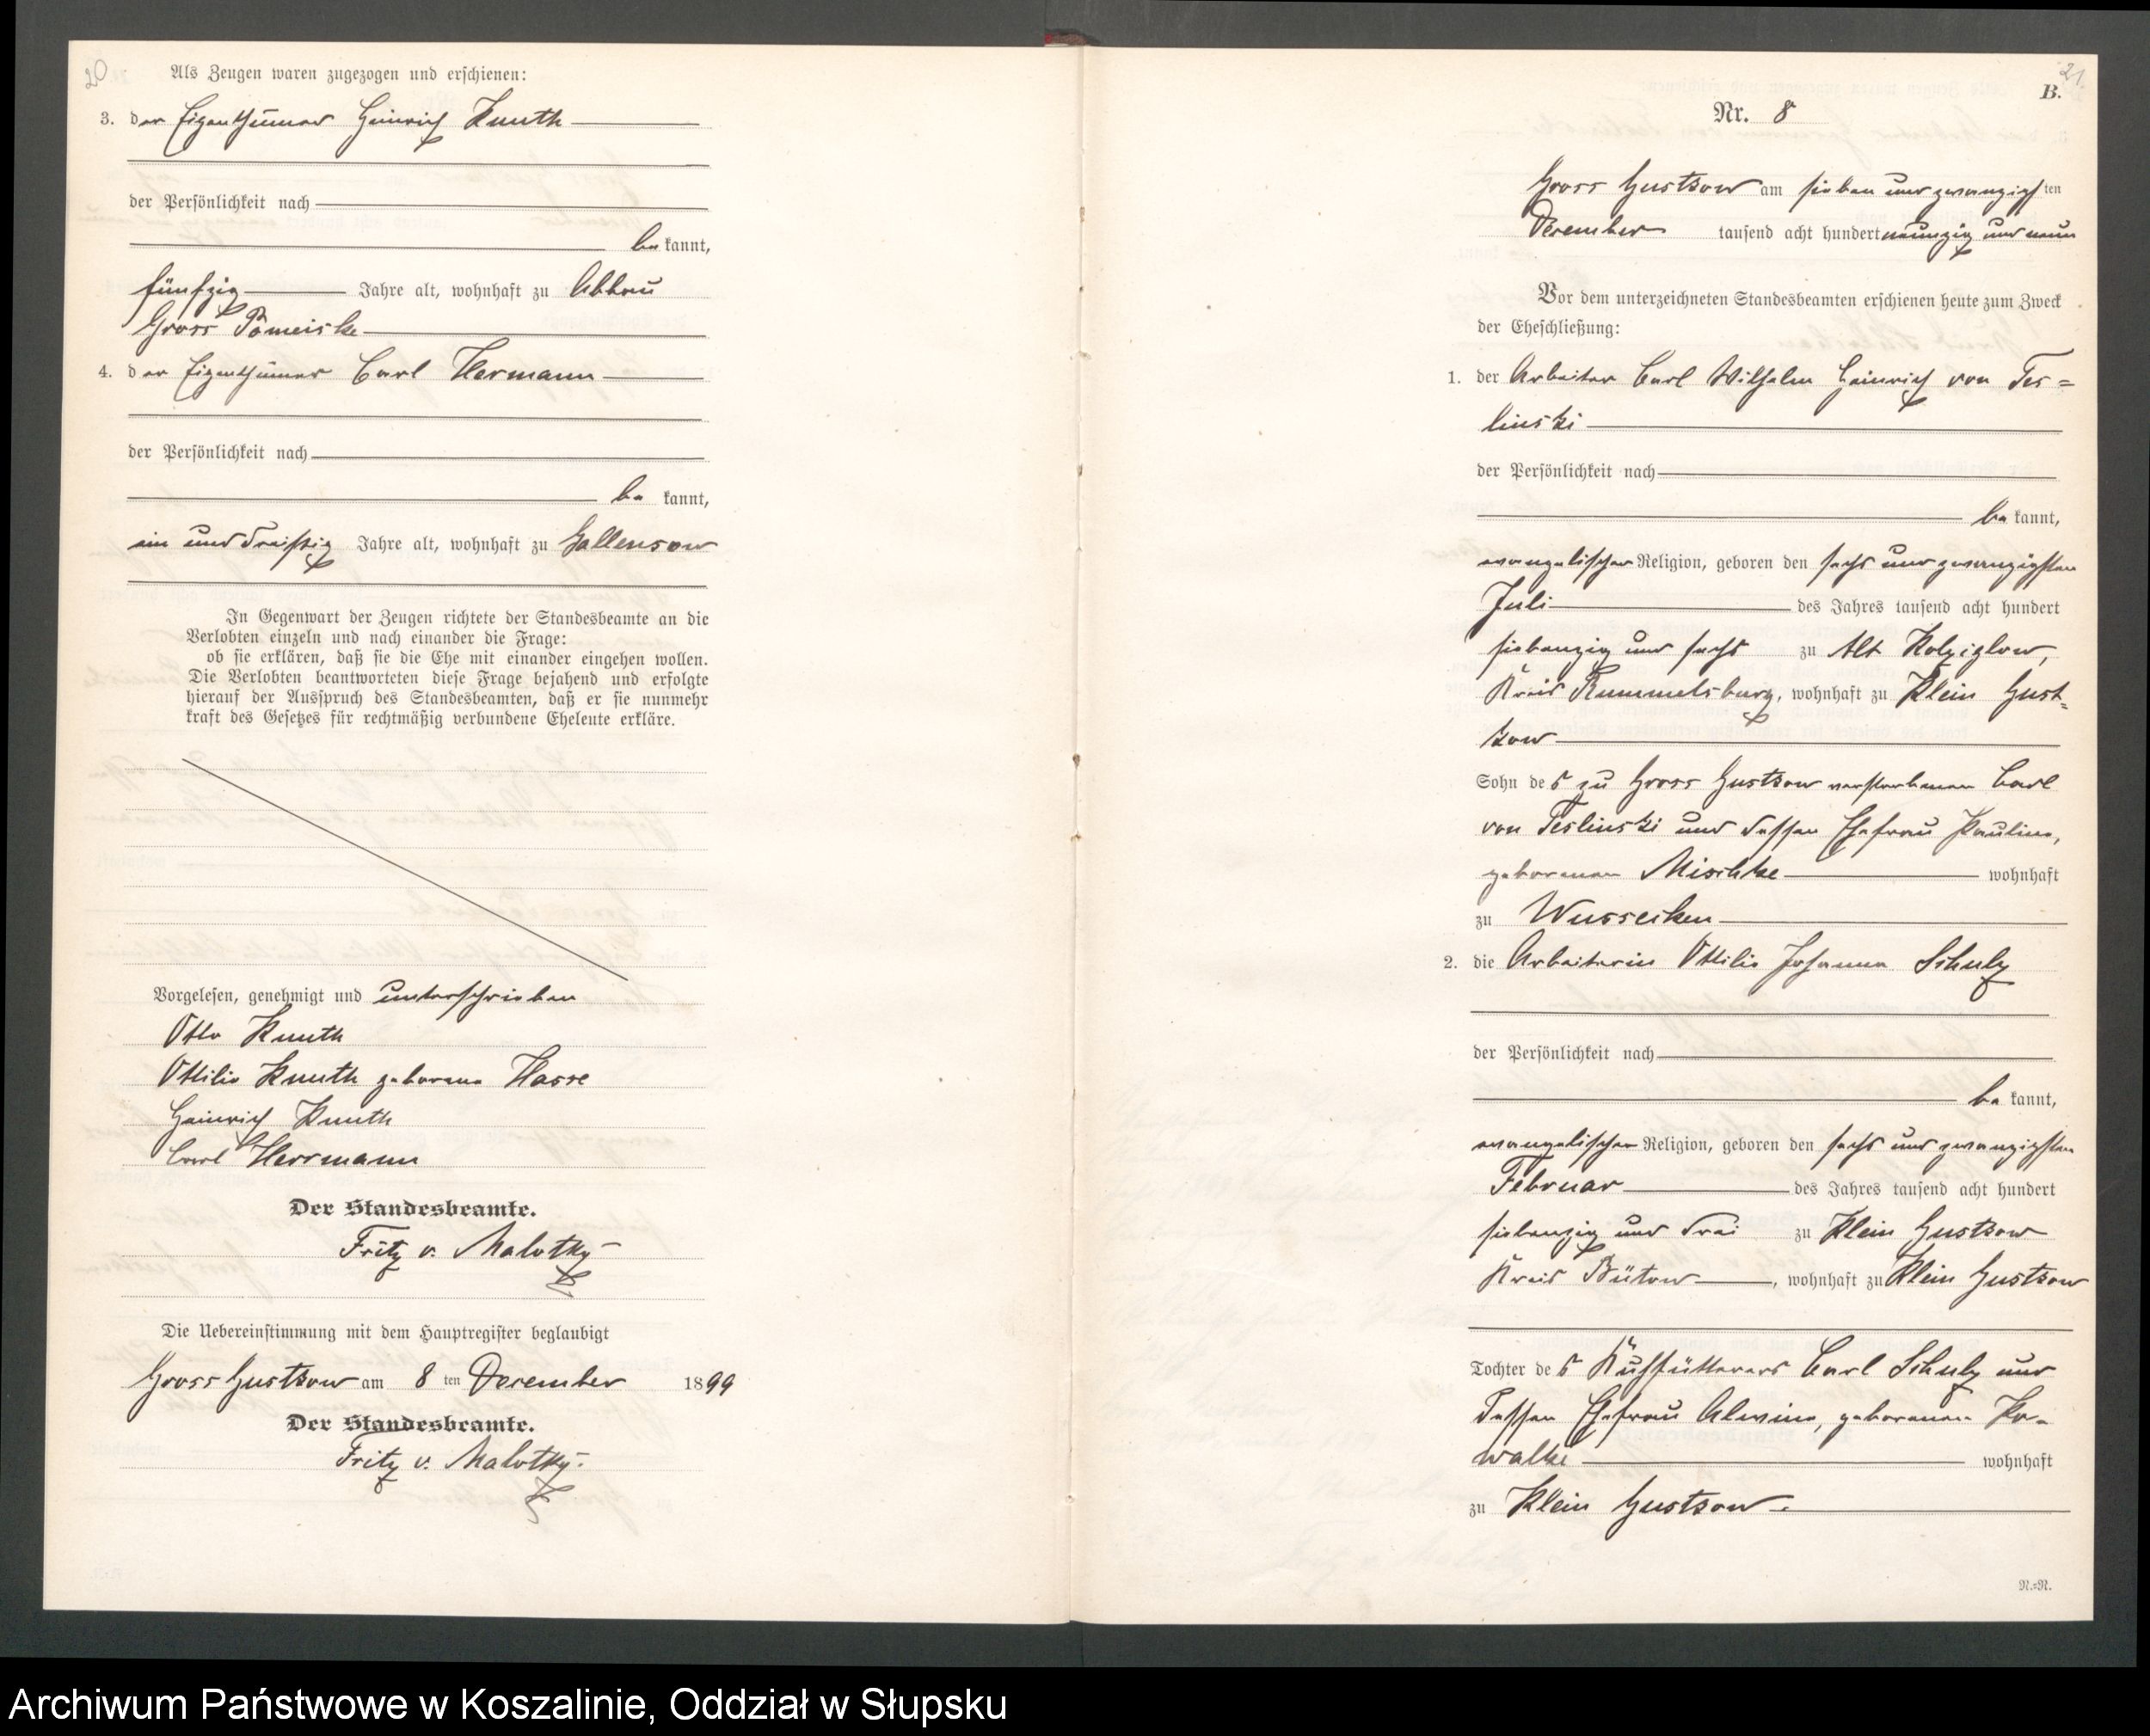 20
Als Zeugen waren zugezogen und erschienen:
3. der Eigenthümer Heinrich Knuth
der Persönlichkeit nach
be kannt,
fünfzig Jahre alt, wohnhaft zu Abbau
Gross Pomeiske
4. der Eigenthümer Carl Hermann
der Persönlichkeit nach
be kannt,
ein und dreißig Jahre alt, wohnhaft zu Gallensow
In Gegenwart der Zeugen richtete der Standesbeamte an die
Verlobten einzeln und nach einander die Frage:
ob sie erklären, daß sie die Ehe mit einander eingehen wollen.
Die Verlobten beantworteten diese Frage bejahend und erfolgte
hierauf der Ausspruch des Standesbeamten, daß er sie nunmehr
kraft des Gesetzes für rechtmäßig verbundene Eheleute erkläre.
Vorgelesen, genehmigt und unterschrieben
Otto Knuth
Ottilie Knuth geborene Hasse
Heinrich Knuth
Carl Herrmann
Der Standesbeamte.
Fritz v. Malotky
Die Uebereinstimmung mit dem Hauptregister beglaubigt
Gross Gustkow am 8 ten December 1899
Der Standesbeamte.
Fritz v. Malotky.
21
B.
Nr. 8
Gross Gustkow am sieben und zwanzigsten
December tausend acht hundert neunzig und neun
Vor dem unterzeichneten Standesbeamten erschienen heute zum Zweck
der Eheschließung:
1. der Arbeiter Carl Wilhelm Heinrich von Tes=
linski
der Persönlichkeit nach
be kannt,
evangelischer Religion, geboren den sechs und zwanzigsten
Juli des Jahres tausend acht hundert
siebenzig und sechs zu Alt Kolziglow,
Kreis Rummelsburg, wohnhaft zu Klein Gust=
kow
Sohn des zu Gross Gustkow verstorbenen Carl
von Teslinski und dessen Ehefrau Pauline,
geborenen Mischke wohnhaft
zu Wusseken
2. die Arbeiterin Ottilie Johanna Schulz
der Persönlichkeit nach
be kannt,
evangelischer Religion, geboren den sechs und zwanzigsten
Februar des Jahres tausend acht hundert
siebenzig und drei zu Klein Gustkow
Kreis Bütow, wohnhaft zu Klein Gustkow
Tochter des Kuhfütterers Carl Schulz und
dessen Ehefrau Alwine, geborenen Ko-
walke wohnhaft
zu Klein Gustkow.
N.=N.
Archiwum Państwowe w Koszalinie, Oddział w Słupsku